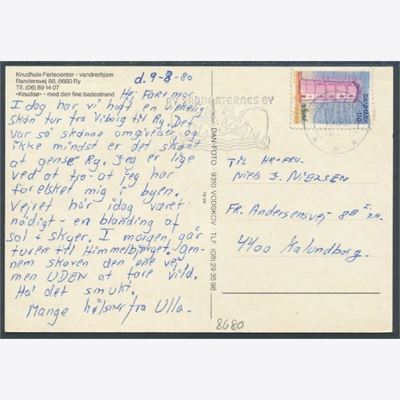 Knudhule Feriecenter - vandrerhjem
Randersvej 88, 8680 Ry
Tlf. (06) 89 14 07
«Knudsø» - med den fine badestrand
d. 9-8-80
Hej Farmor
I dag har vi haft en virkelig
skøn tur fra Viborg til Ry. Det
var så skønne omgivelser, og
ikke mindst er det skønt
at gense Ry. Jeg er lige
ved at tro at jeg har
forelsket mig i byen.
Vejret har i dag været
nådigt - en blanding af
sol + skyer. I morgen går
turen til Himmelbjerget gen-
nem skoven den ene vej
men UDEN at fare vild.
Ha' det smukt.
Mange hilsner fra Ulla.
RY VANDRERNES BY
DANMARK
110
DAN-FOTO 9310 VODSKOV TLF (08) 29 35 98
Til Hr. + Fru.
Niels J. Nielsen
Fr. Andersensvej 88
4400 Kalundborg.
8680